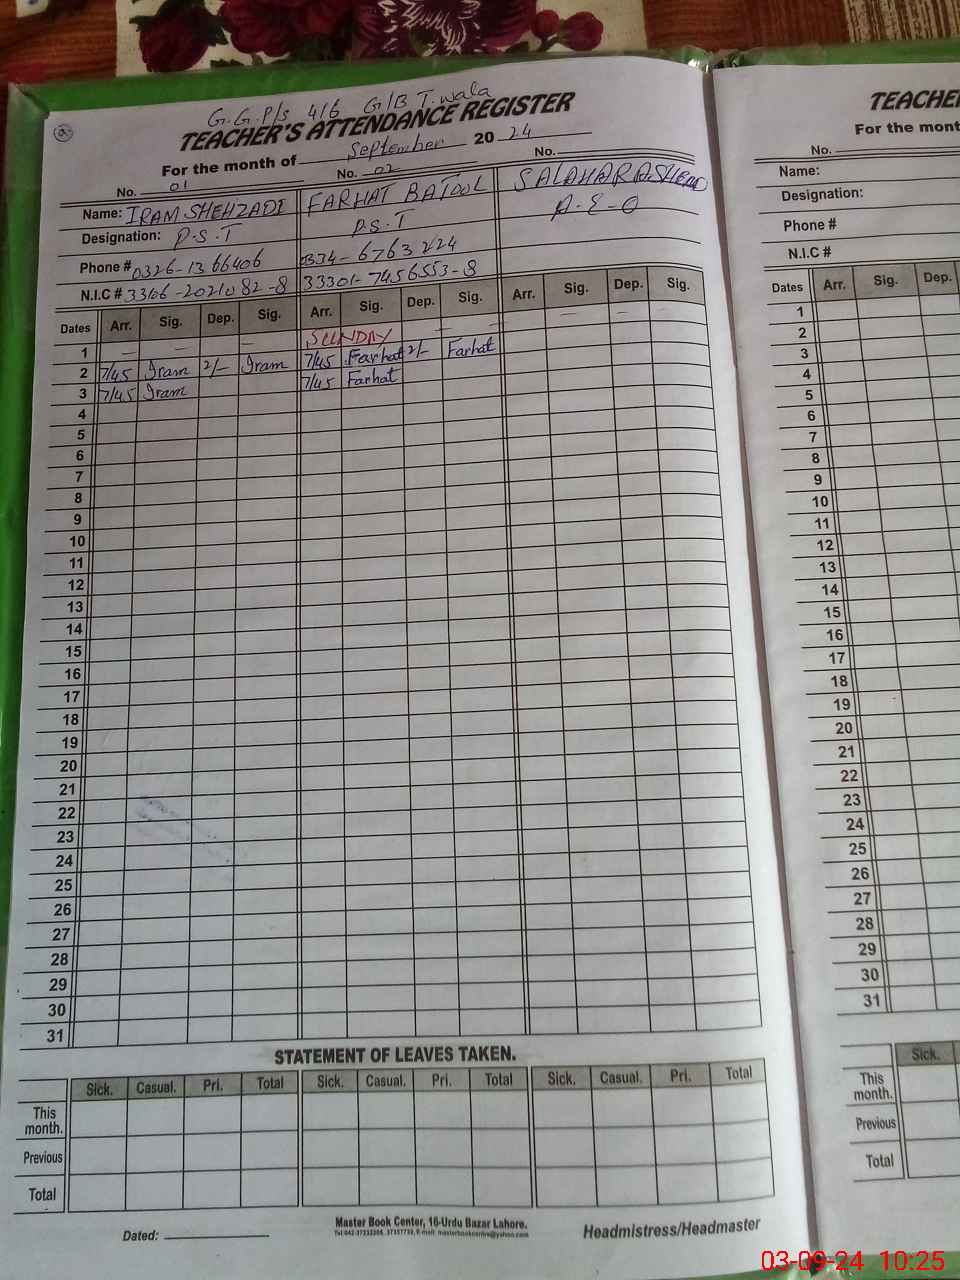 G.G.P/s 416 G/B T.wala
TEACHER'S ATTENDANCE REGISTER
For the month of September 20 24
No. 01 No. 02 No.
Name: IRAM SHEHZADI FARHAT BATOOL
Designation: P.S.T P.S.T A.E.O
Phone # 0326-1366406 0334-6763224
N.I.C # 33106-2021082-8 33301-7456553-8
Dates Arr. Sig. Dep. Sig. Arr. Sig. Dep. Sig. Arr. Sig. Dep. Sig.
1 — — — SUNDAY — — — — —
2 7/45 Iram 2/- Iram 7/45 Farhat 2/- Farhat
3 7/45 Iram 7/45 Farhat
4
5
6
7
8
9
10
11
12
13
14
15
16
17
18
19
20
21
22
23
24
25
26
27
28
29
30
31
STATEMENT OF LEAVES TAKEN.
Sick. Casual. Pri. Total Sick. Casual. Pri. Total Sick. Casual. Pri. Total
This month.
Previous
Total
Dated:
Master Book Center, 16-Urdu Bazar Lahore.
Headmistress/Headmaster
TEACHE
For the mont
No.
Name:
Designation:
Phone #
N.I.C #
Dates Arr. Sig. Dep.
1
2
3
4
5
6
7
8
9
10
11
12
13
14
15
16
17
18
19
20
21
22
23
24
25
26
27
28
29
30
31
Sick.
This month.
Previous
Total
03-09-24 10:25